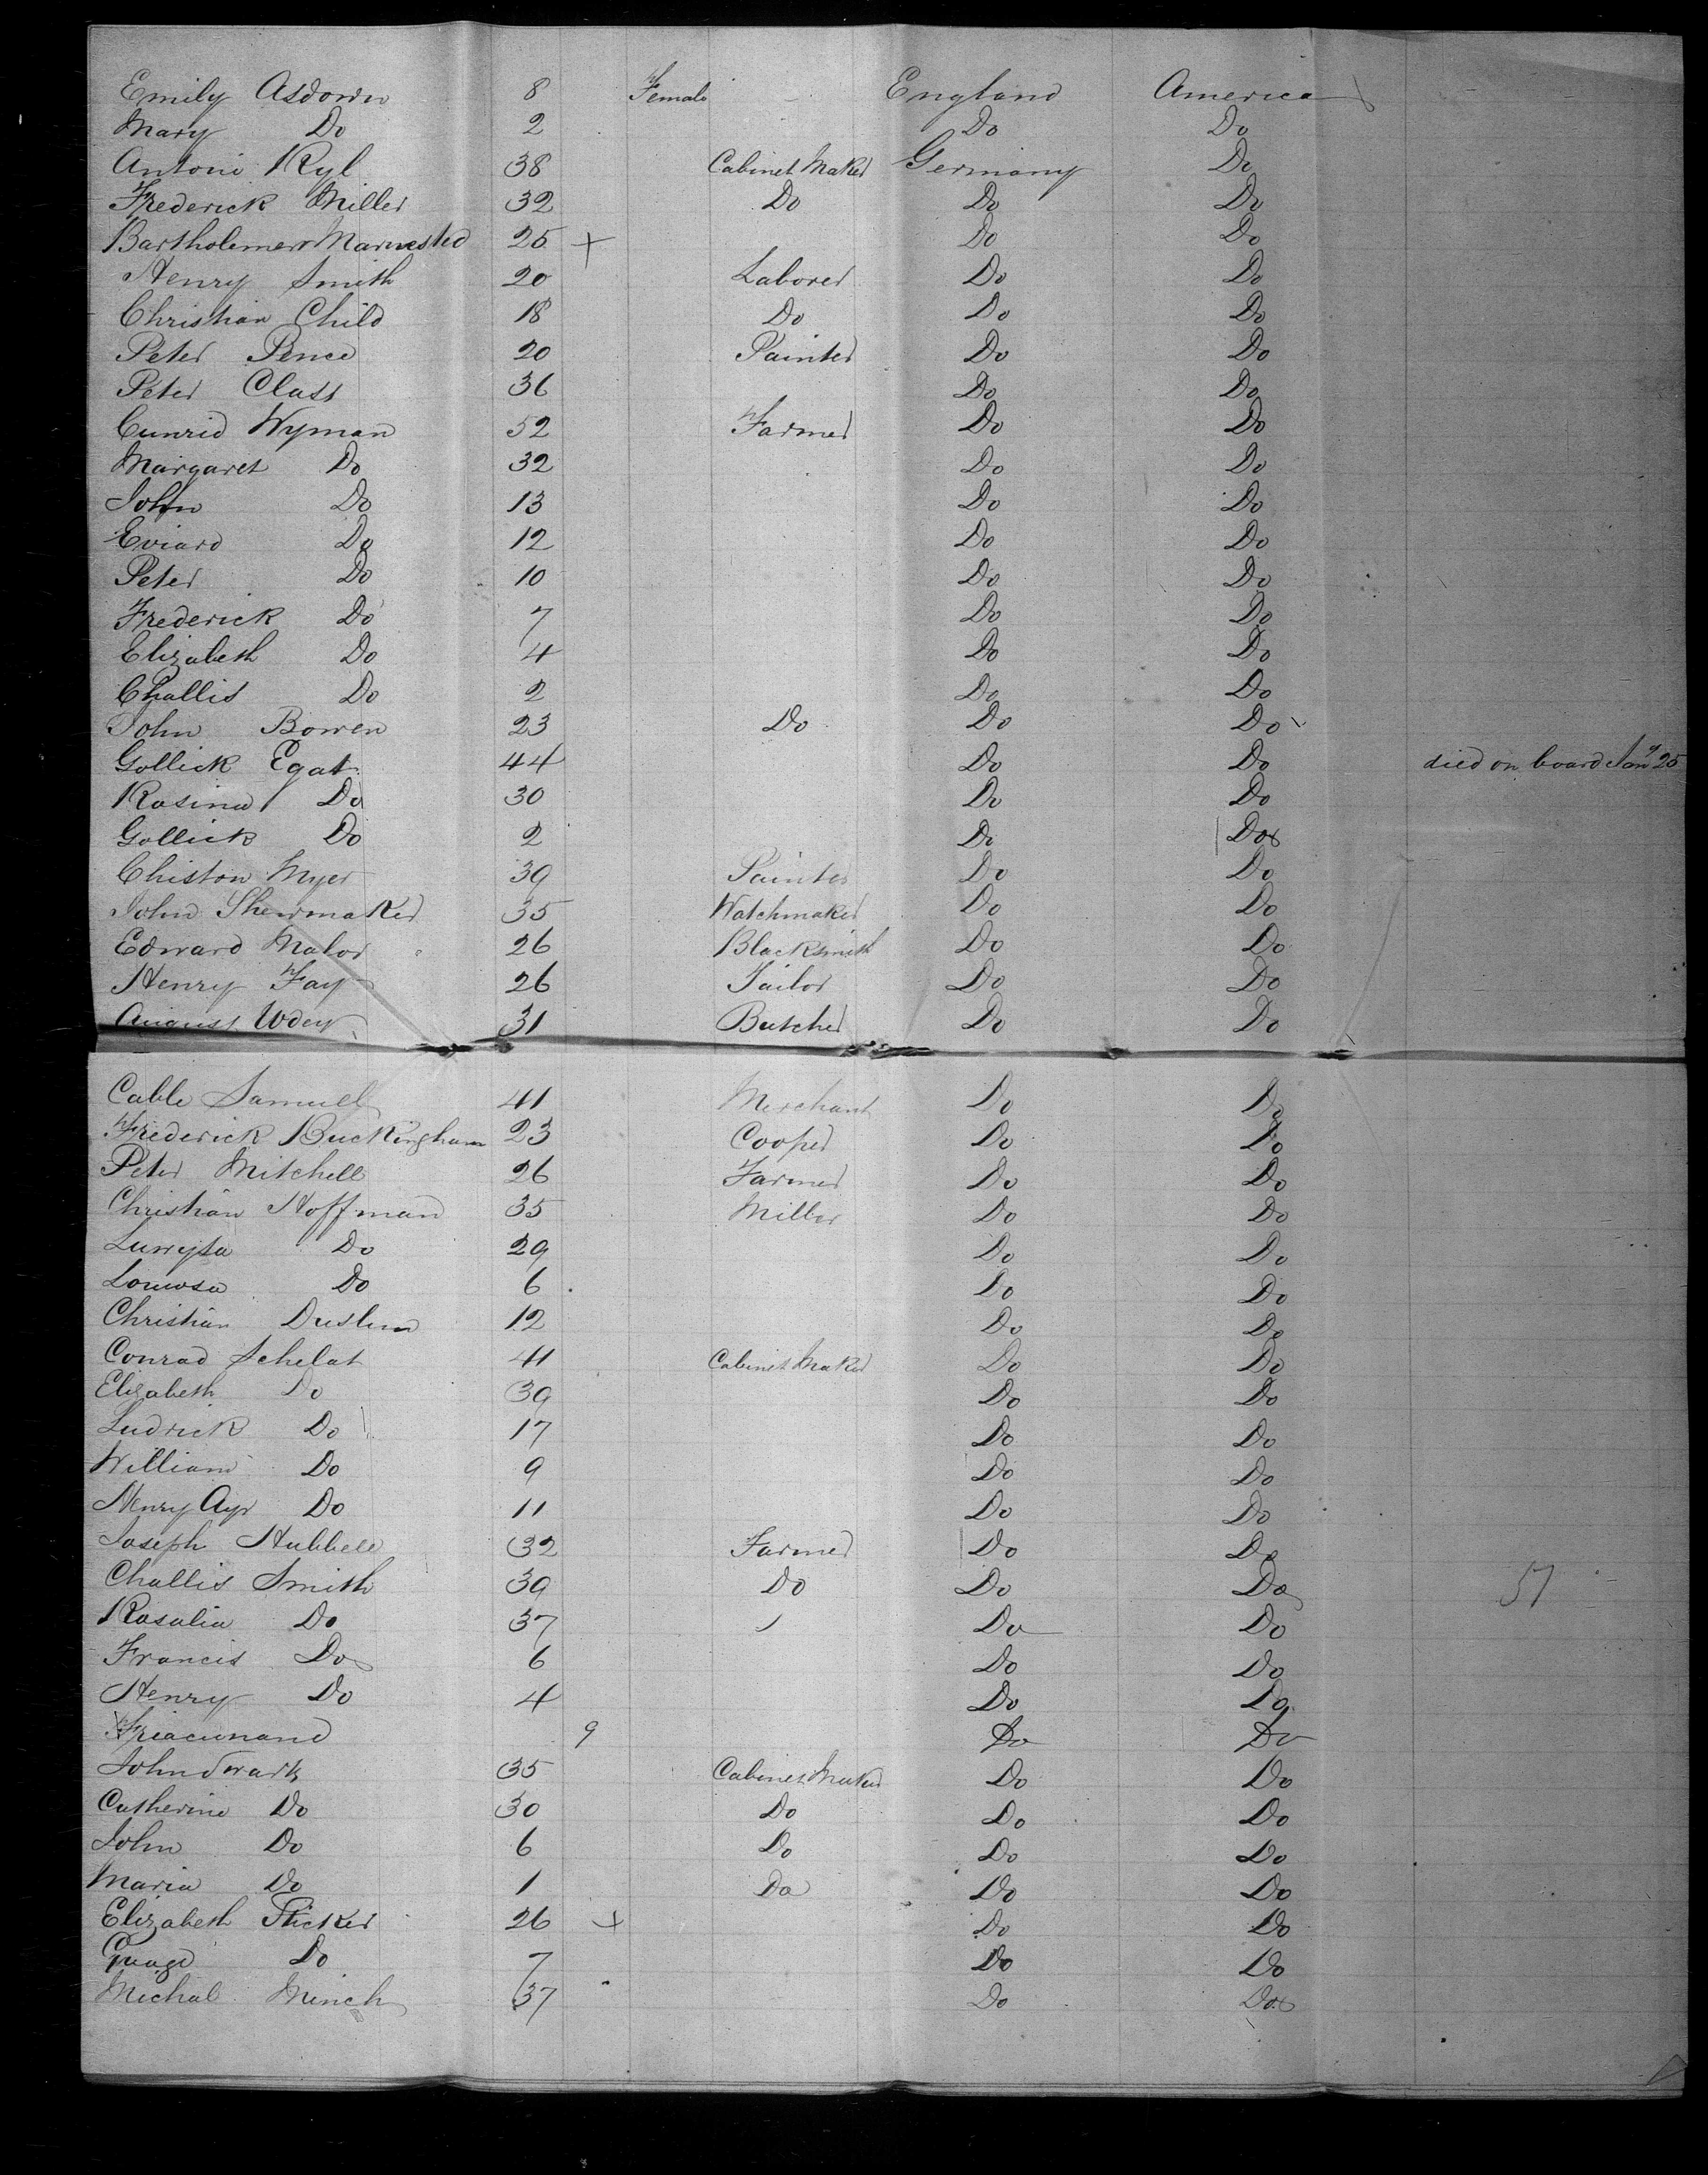 Emily Asdown 8 Female England America
Mary Do 2 Do Do
Antoni Ryl 38 Cabinet Maker Germany Do
Frederick Miller 32 Do Do Do
Bartholemew 25 + Do Do
Henry Smith 20 Laborer Do Do
Christian Child 18 Do Do Do
Peter Pence 20 Painter Do Do
Peter Class 36 Do Do
Cunrid Wyman 52 Farmer Do Do
Margaret Do 32 Do Do
John Do 13 Do Do
Eviard Do 12 Do Do
Peter Do 10 Do Do
Frederick Do 7 Do Do
Elizabeth Do 4 Do Do
Challis Do 2 Do Do
John Bowen 23 Do Do Do
Gollick Egat 44 Do Do died on board Jany 25
Rosina Do 30 Do Do
Gollick Do 2 Do Do
Chiston Myer 39 Painter Do Do
John Shewmaker 35 Watchmaker Do Do
Edward Malor 26 Blacksmith Do Do
Henry Fay 26 Tailor Do Do
August 31 Butcher Do Do
Cable Samuel 41 Merchant Do Do
Frederick Buckingham 23 Cooper Do Do
Peter Mitchell 26 Farmer Do Do
Christian Hoffman 35 Miller Do Do
Luwysa Do 29 Do Do
Louwsa Do 6 Do Do
Christian 12 Do Do
Conrad Schelat 41 Cabinet Maker Do Do
Elizabeth Do 39 Do Do
Ludrick Do 17 Do Do
William Do 9 Do Do
Henry Do 11 Do Do
Joseph Hubbell 32 Farmer Do Do
Challis Smith 39 Do Do Do 57
Rosalia Do 37 Do Do
Francis Do 6 Do Do
Henry Do 4 Do Do
9 Do Do
John Swark 35 Cabinet Maker Do Do
Catherine Do 30 Do Do Do
John Do 6 Do Do Do
Maria Do 1 Do Do Do
Elizabeth 26 + Do Do
Do 7 Do Do
Michal Minch 37 Do Do